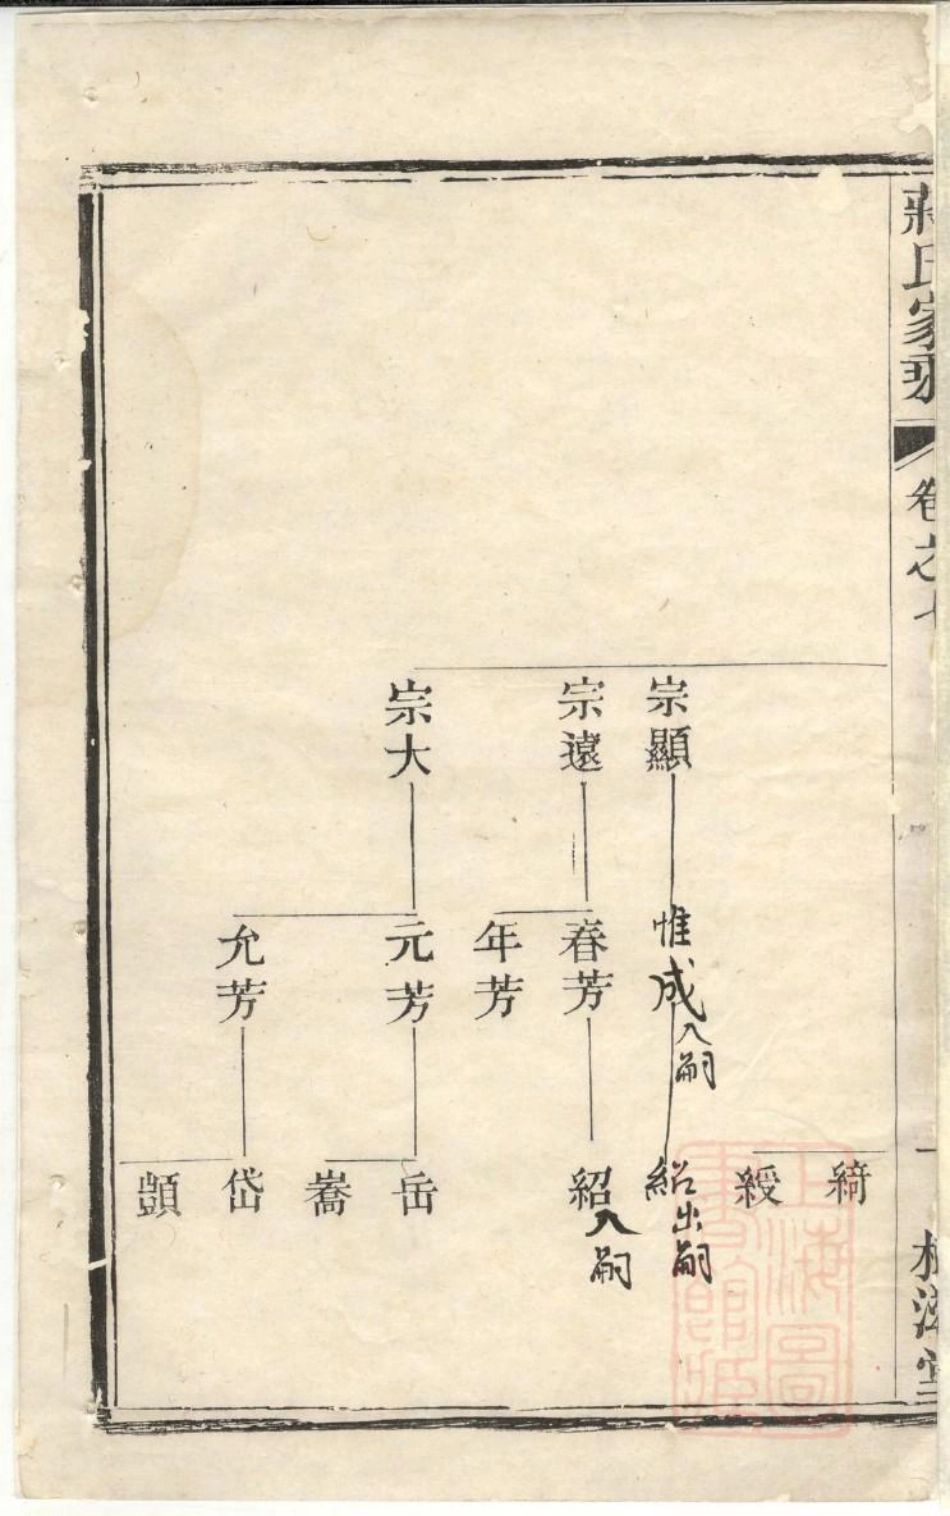 蔣氏家乘
卷之七
一
宗顯
宗遠
宗大
惟成入嗣
春芳
年芳
元芳
允芳
綺
綬
紹出嗣
紹入嗣
岳
嵩
岱
顗
上海圖
書館藏